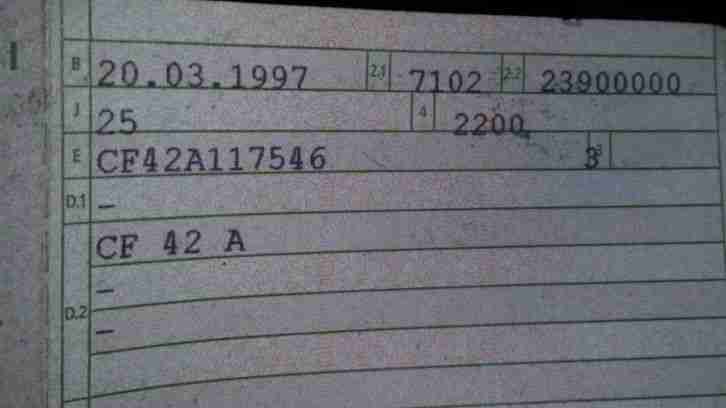 B 20.03.1997 2.1 7102 2.2 23900000
J 25 4 2200
E CF42A117546 3
D.1 –
CF 42 A
–
D.2 –